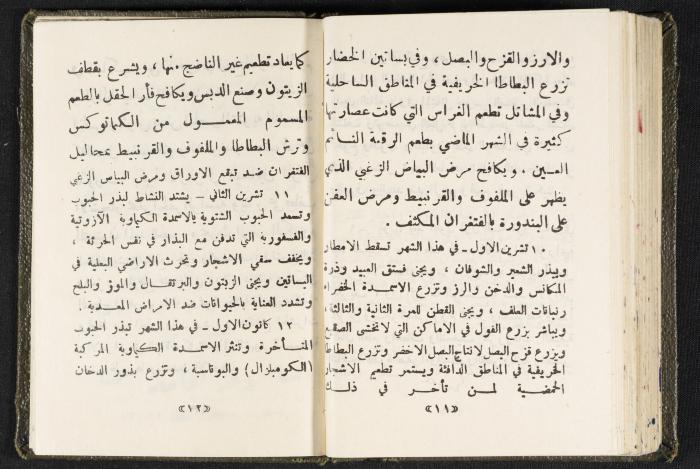 والارز والقزح والبصل، وفي بساتين الخضار
تزرع البطاطا الخريفية في المناطق الساحلية
وفي المشاتل تطعم الغراس التي كانت عصارتها
كثيرة في الشهر الماضي بطعم الرقعة النائم
العين . ويكافح مرض البياض الزغبي الذي
يظهر على الملفوف والقرنبيط ومرض العفن
على البندورة بالفتفران المكثف .
١٠ تشرين الاول ـ في هذا الشهر تسقط الامطار
ويبذر الشعير والشوفان ، ويجنى فستق العبيد وذرة
المكانس والدخن والرز وتزرع الاسمدة الخضراء
ونباتات العلف ، ويجنى القطن للمرة الثانية والثالثة ،
ويباشر بزرع الفول في الاماكن التي لا تخشى الصقيع
ويزرع قزح البصل لانتاج البصل الاخضر وتزرع البطاطا
الخريفية في المناطق الدافئة ويستمر تطعيم الاشجار
الحمضية لمن تأخر في ذلك
«١١»
كما يعاد تطعيم غير الناضج منها ، ويشرع بقطف
الزيتون وصنع الدبس ويكافح فأر الحقل بالطعم
المسموم المعمول من الكلمانوكس
وترش البطاطا والملفوف والقرنبيط بمحاليل
الفتفران ضد تبقع الاوراق ومرض البياس الزغبي
١١ تشرين الثاني ـ يشتد النشاط لبذر الحبوب
وتسمد الحبوب الشتوية بالاسمدة الكيماوية الآزوتية
والفسفورية التي تدفن مع البذار في نفس الحرثة ،
ويخفف سقي الاشجار وتحرث الاراضي البعلية في
البساتين ويجنى الزيتون والبرتقال والموز والبلح
وتشدد العناية بالحيوانات ضد الامراض المعدية .
١٢ كانون الاول ـ في هذا الشهر تبذر الحبوب
المتأخرة وتنثر الاسمدة الكيماوية المركبة
(الكومبلزال) والبوتاسية ، وتزرع بذور الدخان
«١٢»